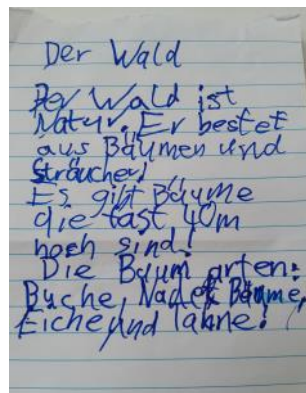 Der Wald
Der Wald ist
Natur. Er bestet
aus Bäumen und
Sträucher!
Es gibt Bäume
die fast 40m
hoch sind!
Die Baum arten:
Buche, Nadel Bäume,
Eiche, und Tanne!